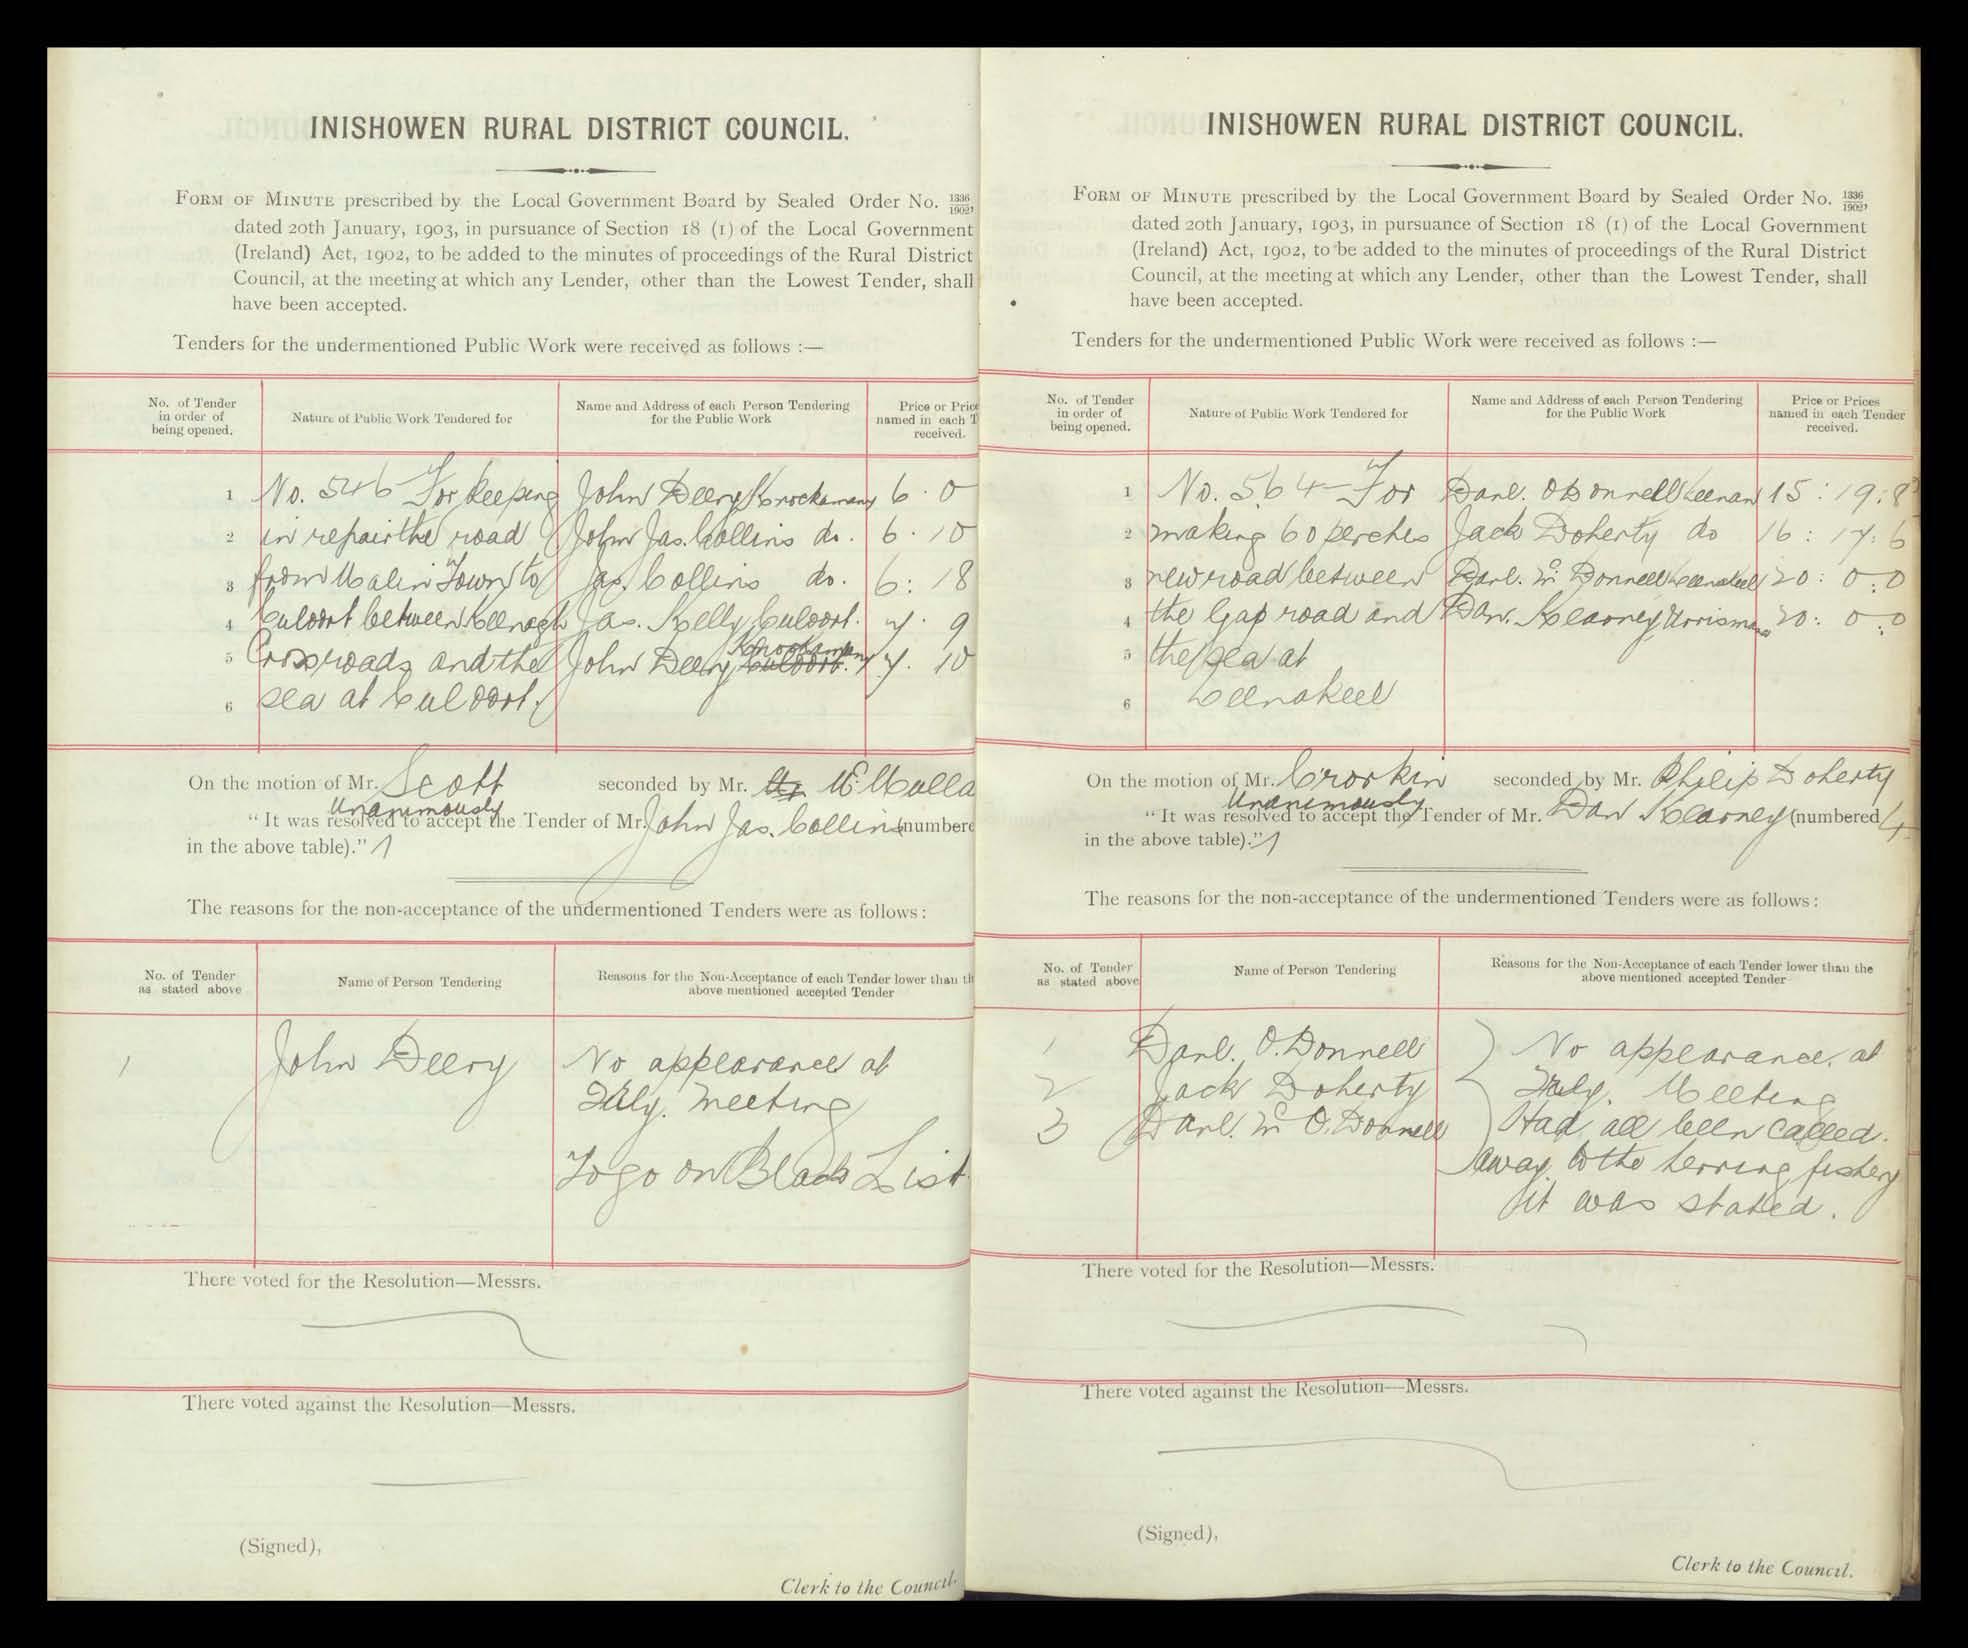 INISHOWEN RURAL DISTRICT COUNCIL.
FORM OF MINUTE prescribed by the Local Government Board by Sealed Order No. 1336/1902,
dated 20th January, 1903, in pursuance of Section 18 (1) of the Local Government
(Ireland) Act, 1902, to be added to the minutes of proceedings of the Rural District
Council, at the meeting at which any Lender, other than the Lowest Tender, shall
have been accepted.
Tenders for the undermentioned Public Work were received as follows :—
No. of Tender in order of being opened. Nature of Public Work Tendered for Name and Address of each Person Tendering for the Public Work Price or Price named in each T received.
1 No. 546 For keeping John Deery Knockamany 6 . 0
2 in repair the road John Jas. Collins do. 6 . 10
3 from Malin Town to Jas. Collins do. 6 : 18
4 Culoort between Keenagh Jas. Kelly Culoort. 7 . 9
5 Crossroads and the John Deery Culoort. Knockamany 7 . 10
6 sea at Culoort.
On the motion of Mr. Scott seconded by Mr. McMulla
Unanimously
"It was resolved to accept the Tender of Mr. John Jas. Collins (numbere
in the above table)."
The reasons for the non-acceptance of the undermentioned Tenders were as follows:
No. of Tender as stated above Name of Person Tendering Reasons for the Non-Acceptance of each Tender lower than th above mentioned accepted Tender
1 John Deery No appearance at
Fally. Meeting
To go on Black List.
There voted for the Resolution—Messrs.
There voted against the Resolution—Messrs.
(Signed),
Clerk to the Council.
INISHOWEN RURAL DISTRICT COUNCIL.
FORM OF MINUTE prescribed by the Local Government Board by Sealed Order No. 1336/1902,
dated 20th January, 1903, in pursuance of Section 18 (1) of the Local Government
(Ireland) Act, 1902, to be added to the minutes of proceedings of the Rural District
Council, at the meeting at which any Lender, other than the Lowest Tender, shall
have been accepted.
Tenders for the undermentioned Public Work were received as follows :—
No. of Tender in order of being opened. Nature of Public Work Tendered for Name and Address of each Person Tendering for the Public Work Price or Prices named in each Tender received.
1 No. 564 For Danl. O'Donnell Leenan 15 : 19 : 8
2 making 60 perches Jack Doherty do 16 : 17 : 6
3 new road between Danl. Mc Donnell Leenakeel 20 : 0 : 0
4 the Gap road and Dan. Kearney Urrismana 20 : 0 : 0
5 the sea at
6 Leenakeel
On the motion of Mr. Crorkin seconded by Mr. Philip Doherty
Unanimously
"It was resolved to accept the Tender of Mr. Dan Kearney (numbered 4
in the above table)."
The reasons for the non-acceptance of the undermentioned Tenders were as follows:
No. of Tender as stated above Name of Person Tendering Reasons for the Non-Acceptance of each Tender lower than the above mentioned accepted Tender
1 Danl. O'Donnell No appearance at
2 Jack Doherty Meeting
3 Danl. Mc O'Donnell Had all been called
away to the herring fishery
it was stated.
There voted for the Resolution—Messrs.
There voted against the Resolution—Messrs.
(Signed),
Clerk to the Council.